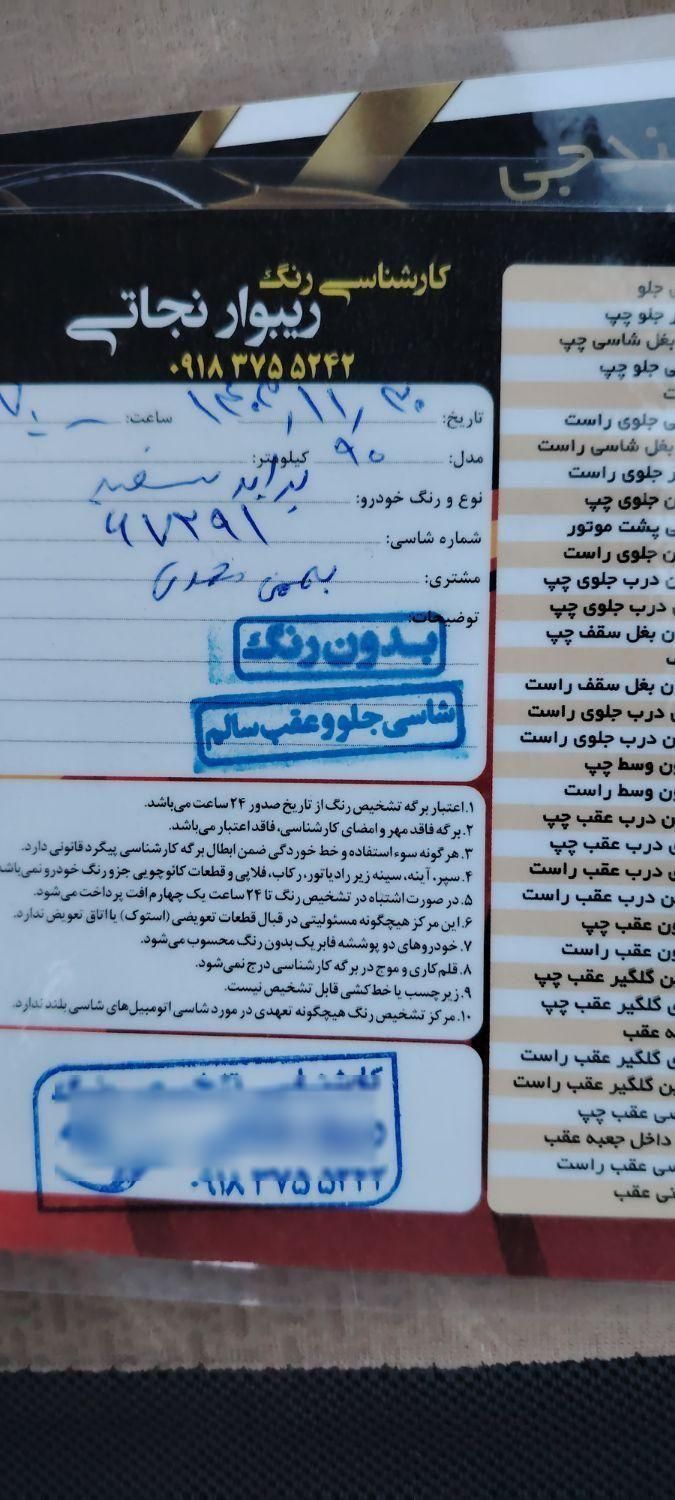 ندجی
کارشناسی رنگ
ریبوار نجاتی
۰۹۱۸ ۳۷۵ ۵۲۴۲
تاریخ: ۱۴۰۳/۱۱/۳۰ ساعت:
مدل: ۹۰ کیلومتر:
نوع و رنگ خودرو: پراید سفید
شماره شاسی: ۶۷۳۹۱
مشتری: بهمن
توضیحات:
بدون رنگ
شاسی جلو و عقب سالم
۱. اعتبار برگه تشخیص رنگ از تاریخ صدور ۲۴ ساعت می‌باشد.
۲. برگه فاقد مهر و امضای کارشناسی، فاقد اعتبار می‌باشد.
۳. هر گونه سوء استفاده و خط خوردگی ضمن ابطال برگه کارشناسی پیگرد قانونی دارد.
۴. سپر، آینه، سینه زیر رادیاتور، رکاب، فلاپی و قطعات کائوچویی جزو رنگ خودرو نمی‌باشد
۵. در صورت اشتباه در تشخیص رنگ تا ۲۴ ساعت یک چهارم افت پرداخت می‌شود.
۶. این مرکز هیچگونه مسئولیتی در قبال قطعات تعویضی (استوک) یا اتاق تعویض ندارد.
۷. خودروهای دو پوششه فابریک بدون رنگ محسوب می‌شود.
۸. قلم‌کاری و موج در برگه کارشناسی درج نمی‌شود.
۹. زیر چسب یا خط کشی قابل تشخیص نیست.
۱۰. مرکز تشخیص رنگ هیچگونه تعهدی در مورد شاسی اتومبیل‌های شاسی بلند ندارد.
۰۹۱۸ ۳۷۵ ۵۲۴۲
ی جلو
ر جلو چپ
بغل شاسی چپ
ی جلو چپ
ت
ی جلوی راست
بغل شاسی راست
ر جلوی راست
ن جلوی چپ
ی پشت موتور
ن جلوی راست
ن درب جلوی چپ
ی درب جلوی چپ
ن بغل سقف چپ
ف
ن بغل سقف راست
ی درب جلوی راست
ن درب جلوی راست
ون وسط چپ
ون وسط راست
ن درب عقب چپ
ی درب عقب چپ
ی درب عقب راست
ن درب عقب راست
ون عقب چپ
ون عقب راست
ن گلگیر عقب چپ
ی گلگیر عقب چپ
ه عقب
ی گلگیر عقب راست
ن گلگیر عقب راست
سی عقب چپ
داخل جعبه عقب
سی عقب راست
نی عقب